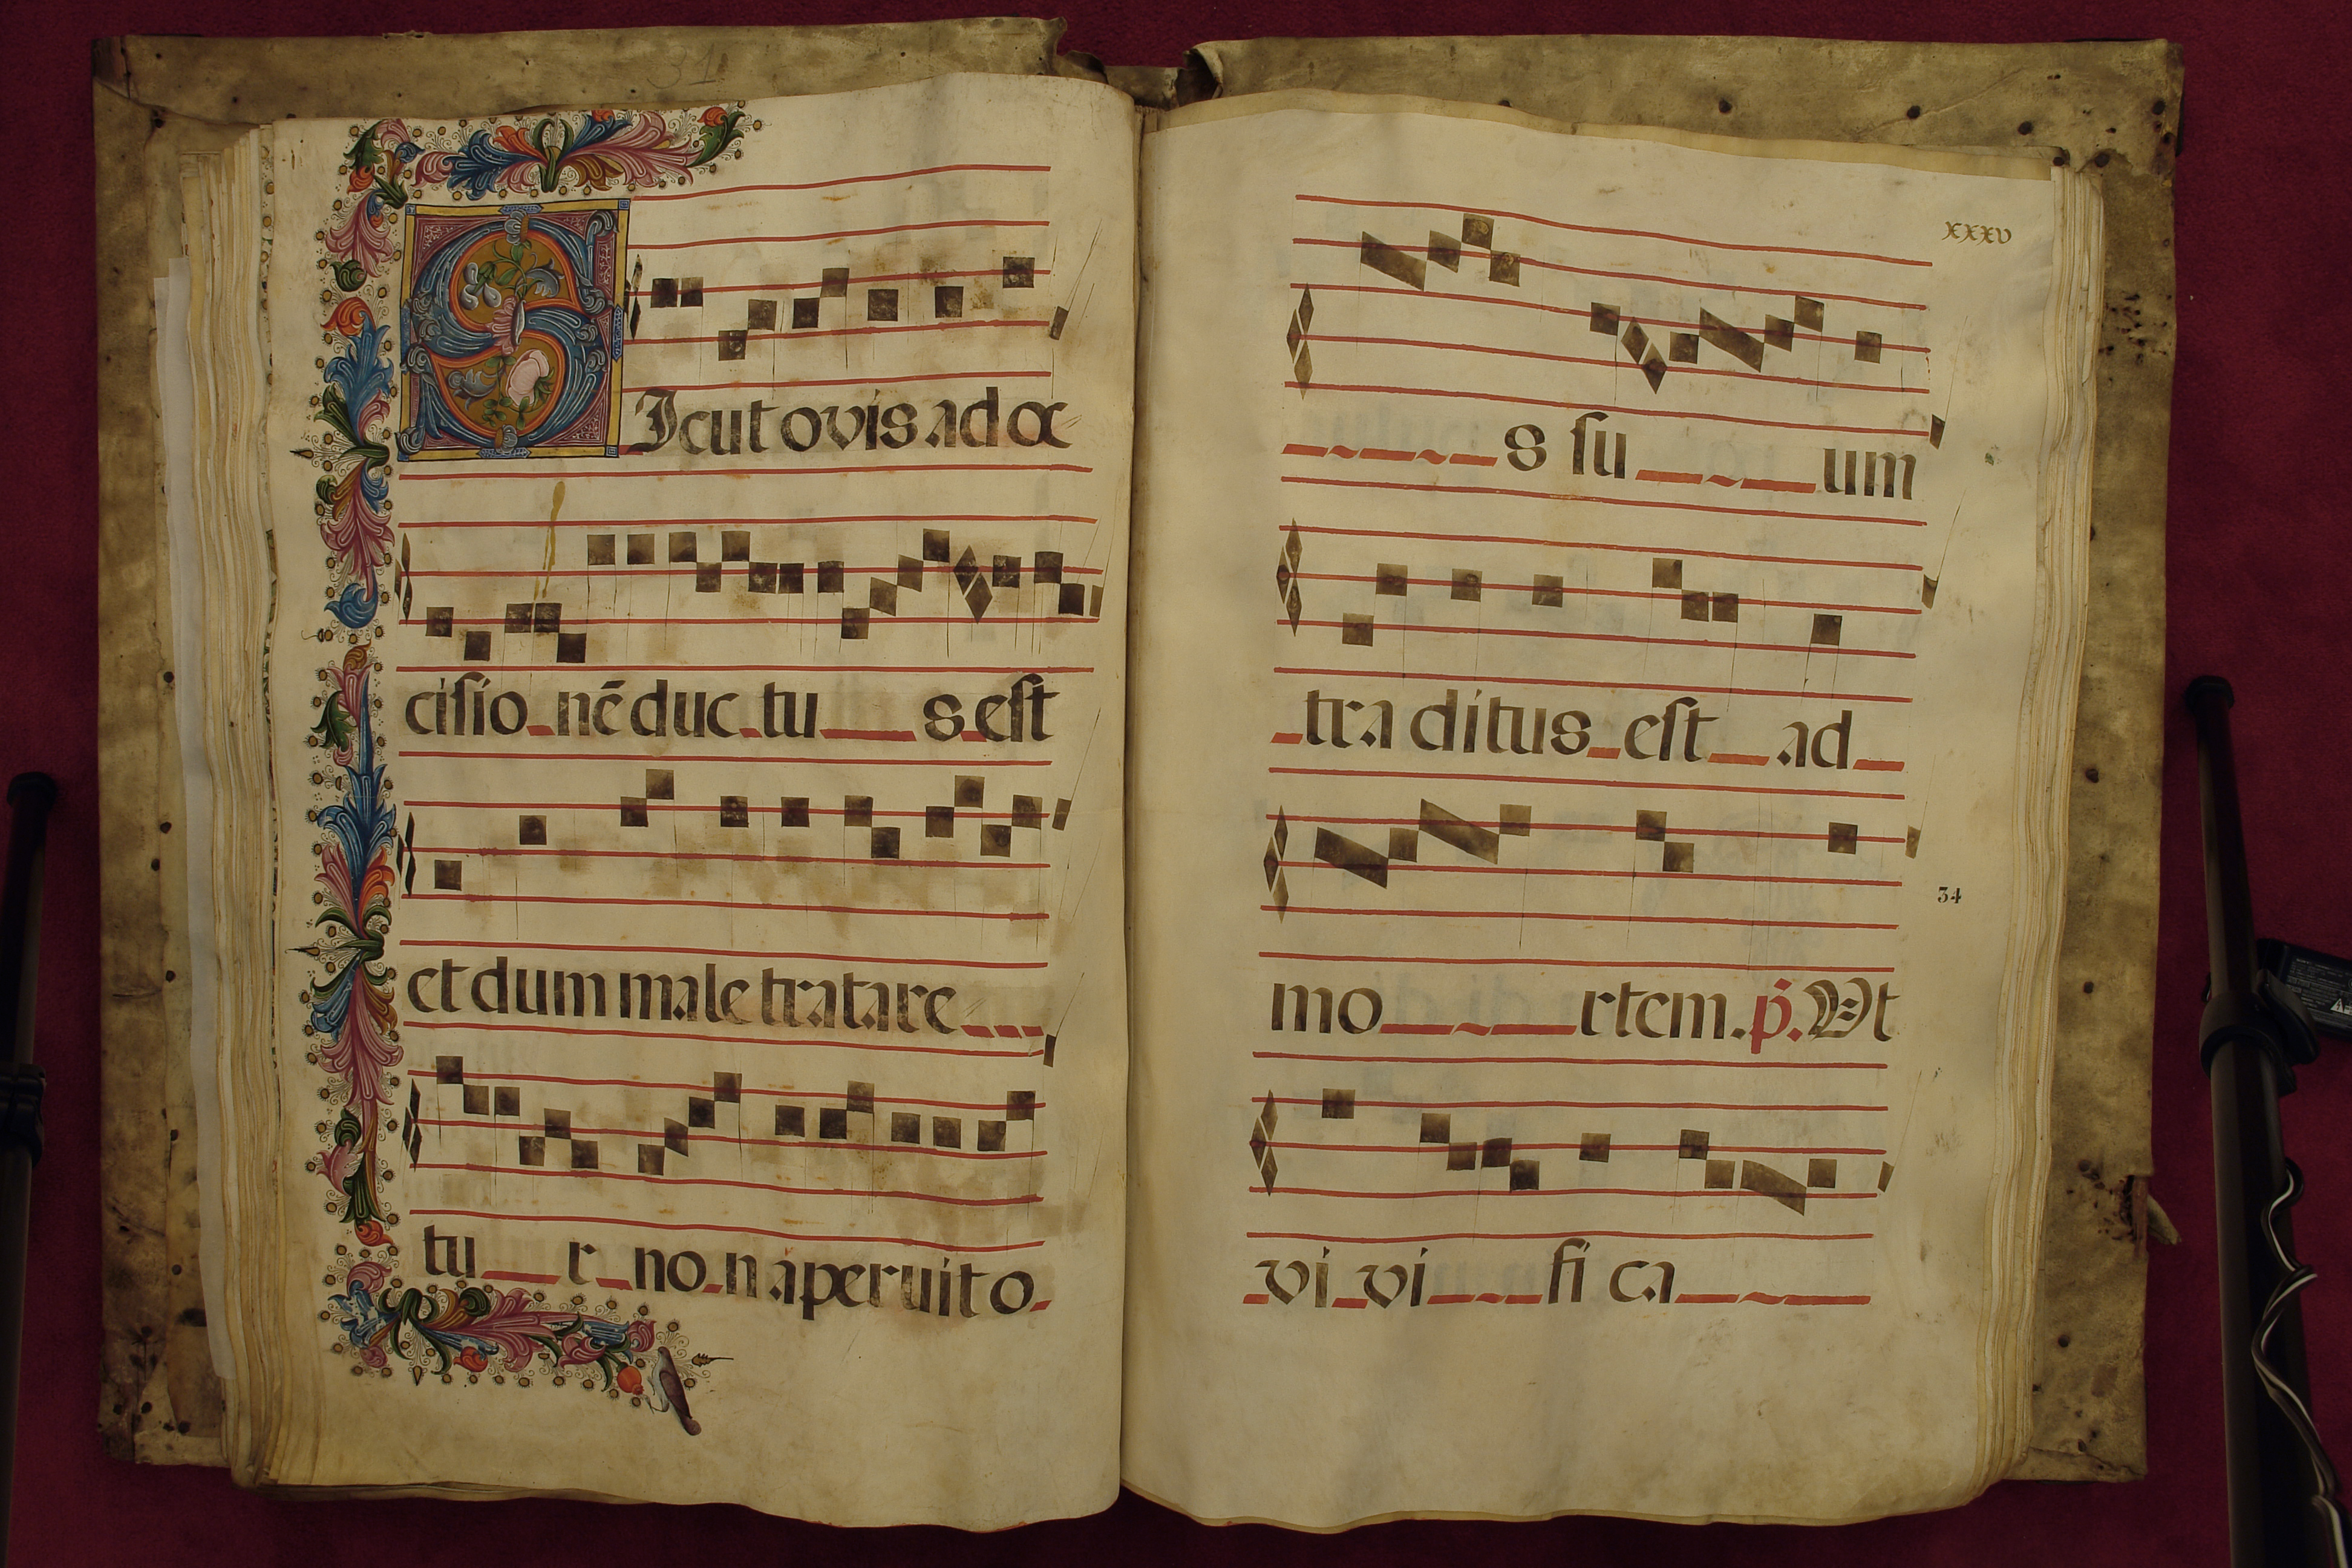 31
SIcut ovis ad oc
cisio nē duc tu s est
et dum male tratare
tu r no n aperuit o
xxxv
s su um
tra ditus est ad
34
mo rtem. p̄. Ut
vi vi fi ca